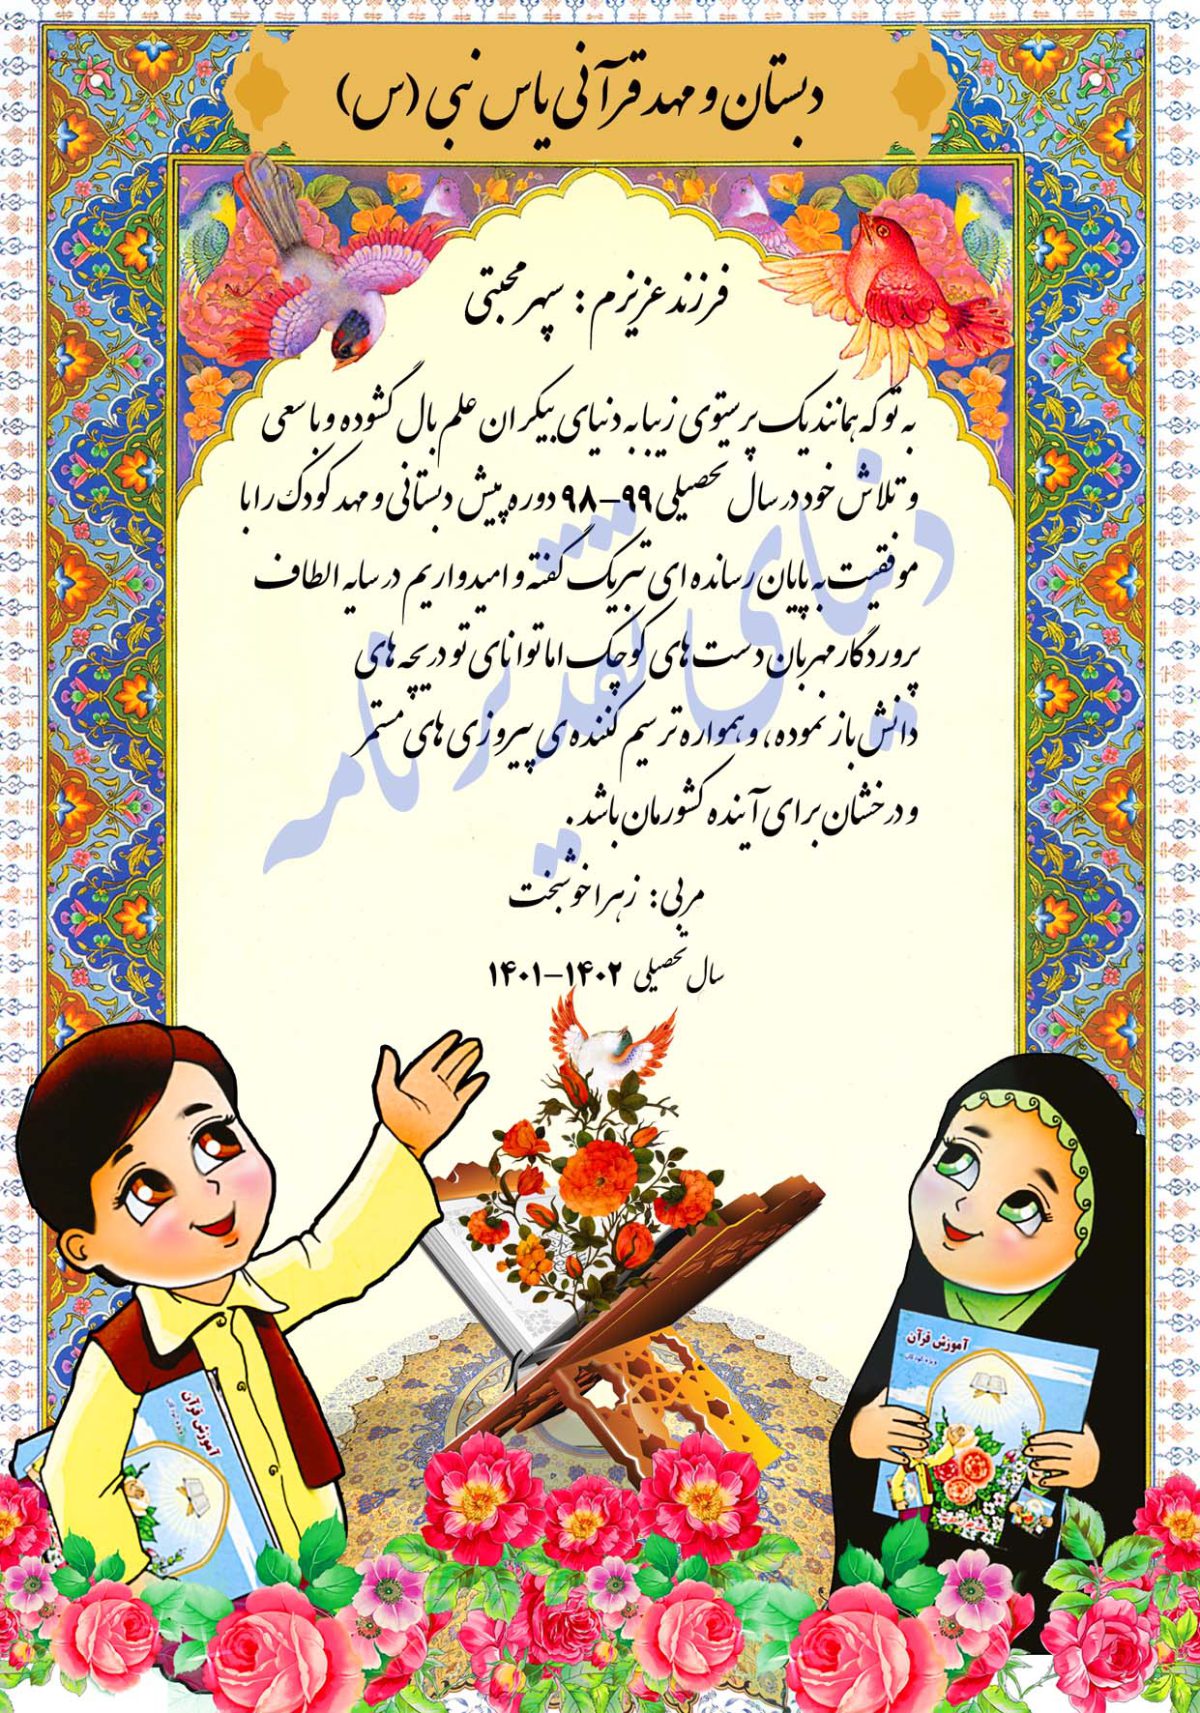 دبستان و مهد قرآنی یاس نبی (س)
فرزند عزیزم : سپهر محبتی
به تو که همانند یک پرستوی زیبا به دنیای بیکران علم بال گشوده و با سعی
و تلاش خود در سال تحصیلی ۹۹-۹۸ دوره پیش دبستانی و مهد کودک را با
موفقیت به پایان رسانده ای تبریک گفته و امیدواریم در سایه الطاف
پروردگار مهربان دست های کوچک اما توانای تو دریچه های
دانش باز نموده ، و همواره ترسیم کننده ی پیروزی های مستمر
و درخشان برای آینده کشورمان باشد .
مربی : زهرا خوشبخت
سال تحصیلی ۱۴۰۲-۱۴۰۱
دنیای تقدیرنامه
آموزش قرآن
آموزش قرآن
ویژه کودکان